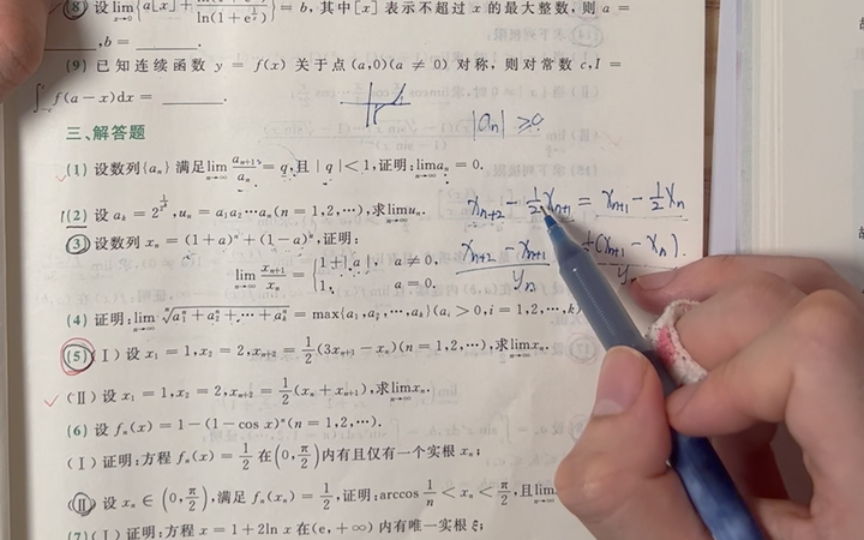 (8) 设lim x→0 {a[x]+ ln(1+e )} = b, 其中[x]表示不超过 x 的最大整数, 则 a =
, b = .
(9) 已知连续函数 y = f(x) 关于点 (a,0)(a ≠ 0) 对称, 则对常数 c, I =
∫ f(a−x)dx = .
三、解答题
|aₙ| ≥0
(1) 设数列{aₙ} 满足lim n→∞ aₙ₊₁/aₙ = q, 且 | q |< 1, 证明: lim n→∞ aₙ = 0.
(2) 设 aₖ = 2^(1/2ᵏ), uₙ = a₁a₂⋯aₙ(n = 1,2,⋯), 求lim n→∞ uₙ.
xₙ₊₂ − 1/2 xₙ₊₁ = xₙ₊₁ − 1/2 xₙ
(3) 设数列 xₙ = (1+a)ⁿ+(1−a)ⁿ, 证明:
xₙ₊₂ − xₙ₊₁ (xₙ₊₁ − xₙ).
yₙ
lim n→∞ xₙ₊₁/xₙ = {1+|a|, a ≠ 0,
1, a = 0.
(4) 证明: lim n→∞ ⁿ√(a₁ⁿ+a₂ⁿ+⋯+aₖⁿ) = max{a₁,a₂,⋯,aₖ}(aᵢ > 0,i = 1,2,⋯,k)
(5) (Ⅰ) 设 x₁ = 1,x₂ = 2,xₙ₊₂ = 1/2(3xₙ₊₁ − xₙ)(n = 1,2,⋯), 求lim n→∞ xₙ.
(Ⅱ) 设 x₁ = 1,x₂ = 2,xₙ₊₂ = 1/2(xₙ + xₙ₊₁), 求lim n→∞ xₙ.
(6) 设 fₙ(x) = 1−(1−cos x)ⁿ(n = 1,2,⋯).
(Ⅰ) 证明:方程 fₙ(x) = 1/2 在(0, π/2)内有且仅有一个实根 xₙ;
(Ⅱ) 设 xₙ ∈ (0, π/2), 满足 fₙ(xₙ) = 1/2, 证明: arccos 1/n < xₙ < π/2, 且lim n→∞
(7) (Ⅰ) 证明:方程 x = 1+2ln x 在(e,+∞) 内有唯一实根 ξ;